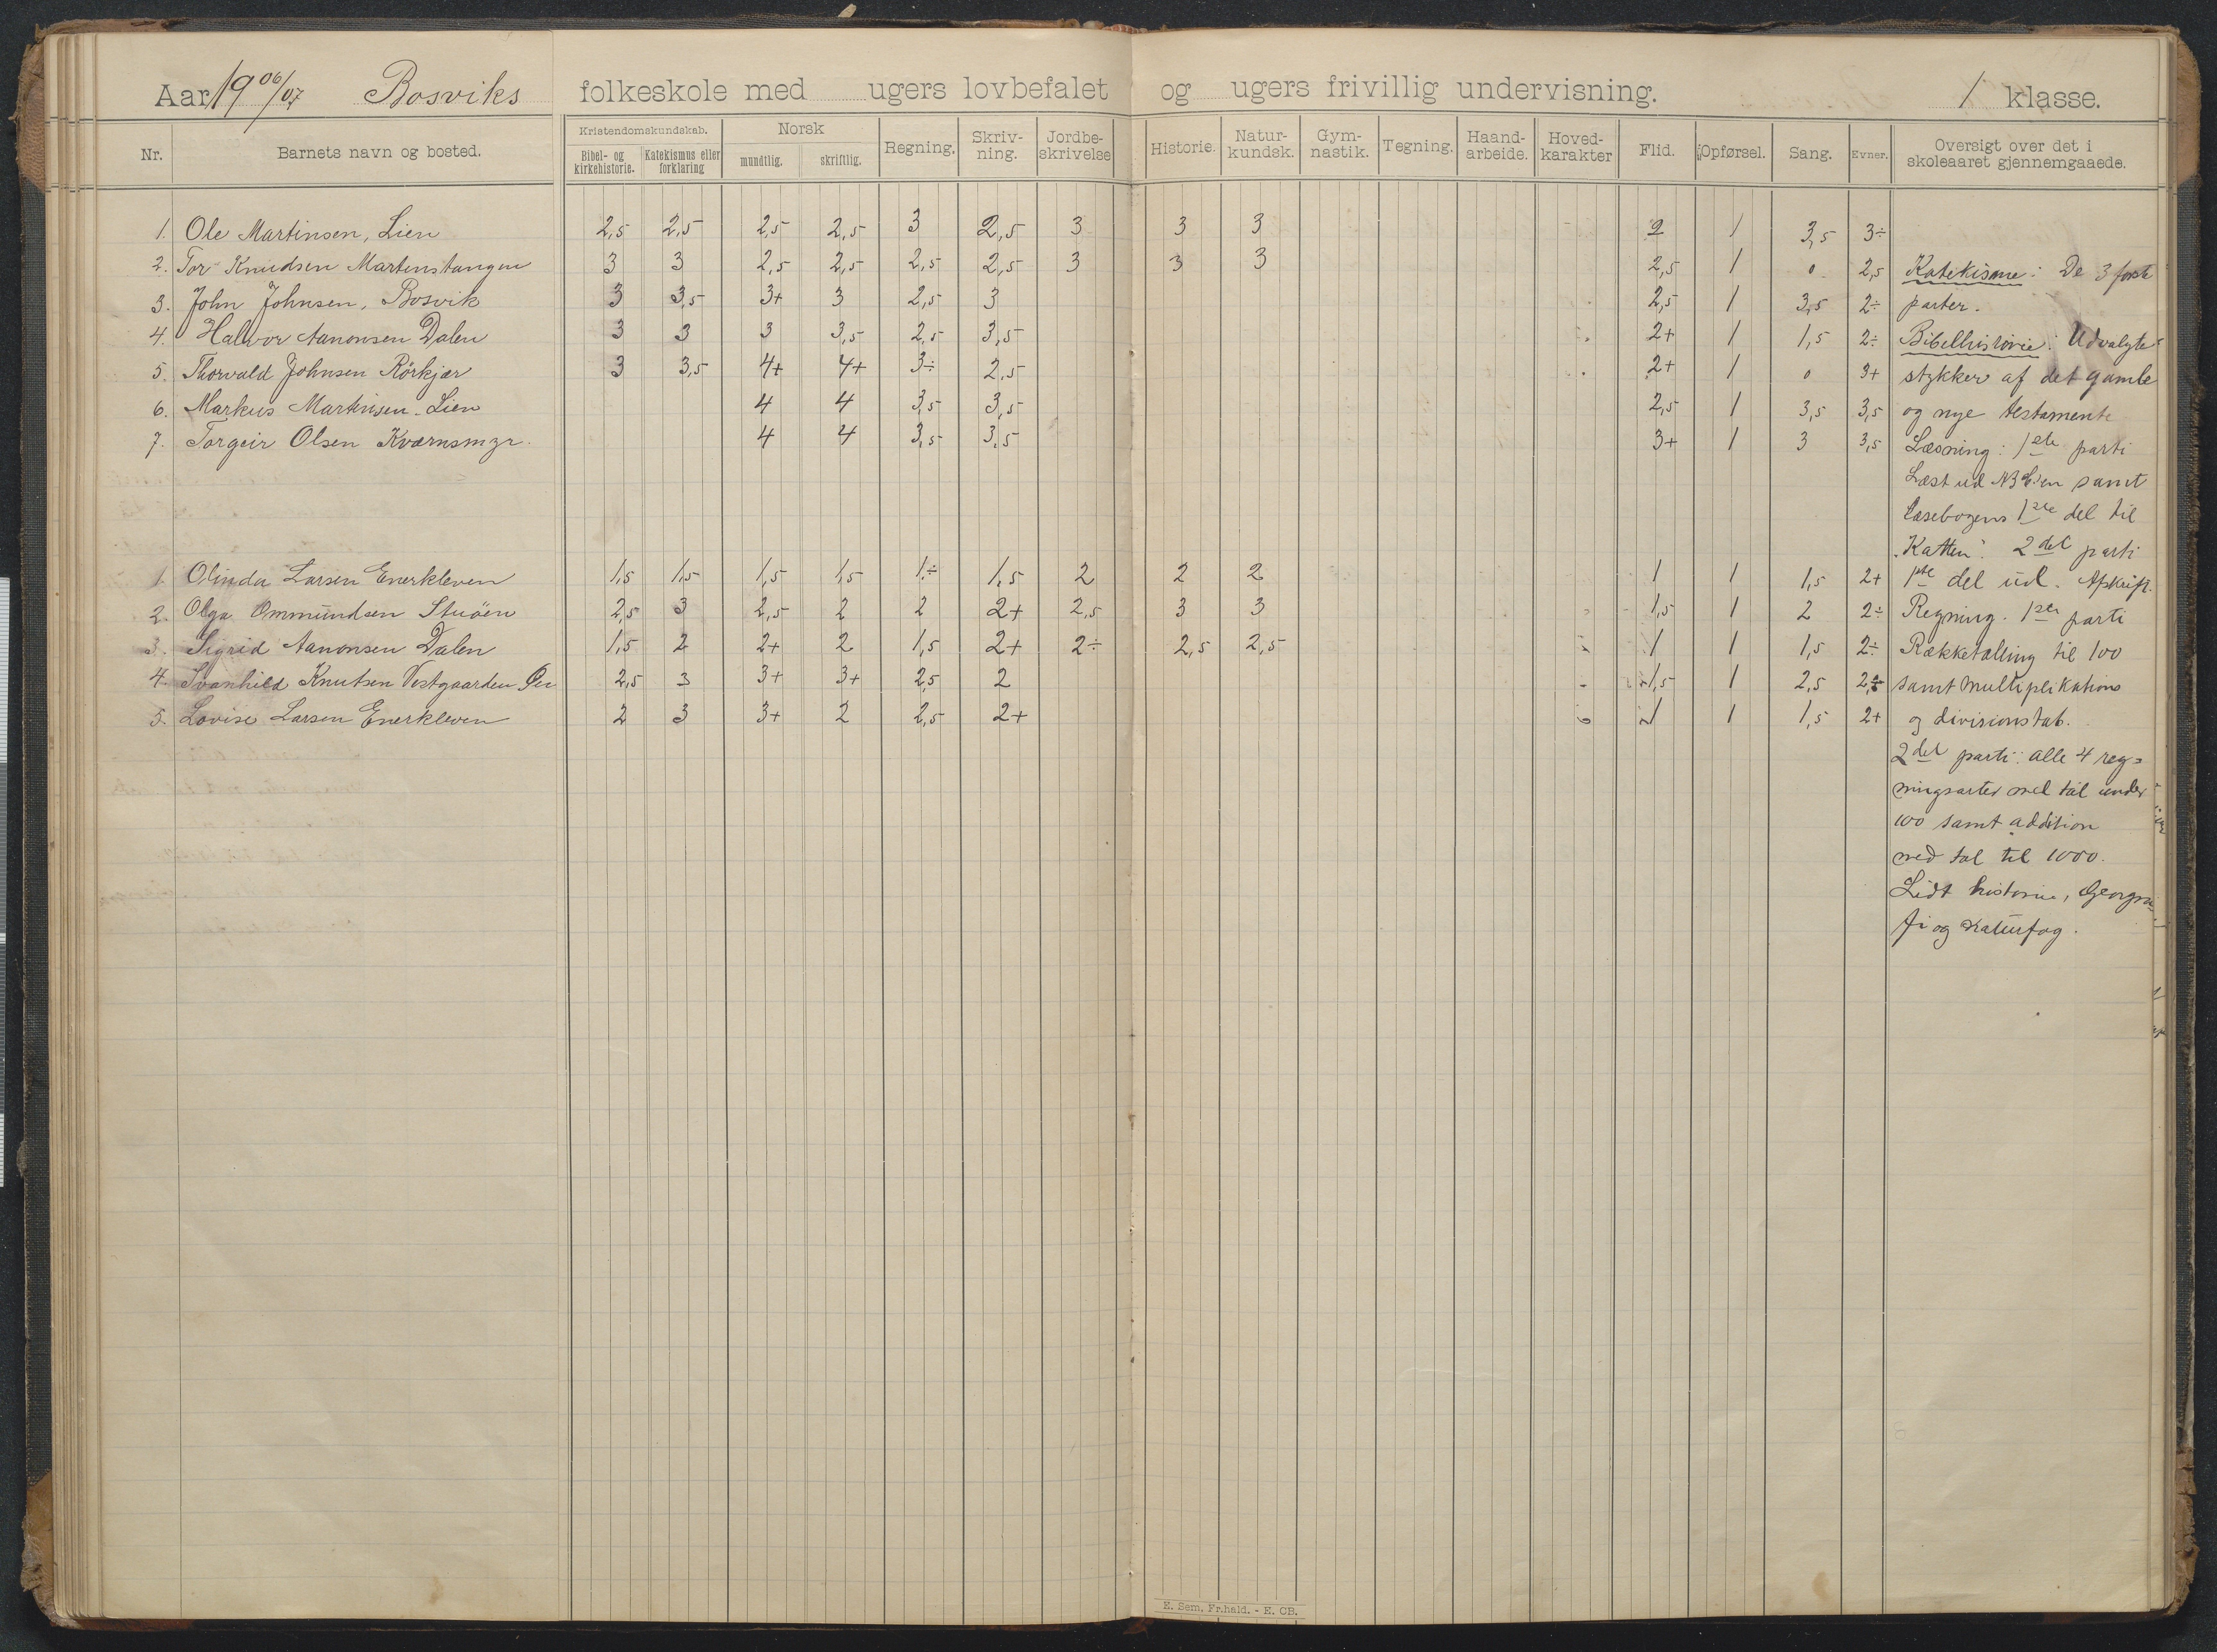 Aar 19 06/07 Bosviks folkeskole med ugers lovbefalet og ugers frivillig undervisning. 1 klasse.
Nr. Barnets navn og bosted. Kristendomskundskab. Bibel- og kirkehistorie. Katekismus eller forklaring Norsk mundtlig. skriftlig. Regning. Skriv-ning. Jordbe-skrivelse Historie. Natur-kundsk. Gym-nastik. Tegning. Haand-arbeide. Hoved-karakter Flid. Opførsel. Sang. Evner. Oversigt over det i skoleaaret gjennemgaaede.
1. Ole Martinsen, Lien 2,5 2,5 2,5 2,5 3 2,5 3 3 3 2 1 3,5 3÷
2. Tor Knudsen Martenstangen 3 3 2,5 2,5 2,5 2,5 3 3 3 2,5 1 0 2,5 Katekisme: De 3 første
3. John Johnsen, Bosvik 3 3,5 3+ 3 2,5 3 2,5 1 3,5 2÷ parter.
4. Halvor Aanonsen Dalen 3 3 3 3,5 2,5 3,5 2+ 1 1,5 2÷ Bibelhistorie: Udvalgte
5. Thorvald Johnsen Rörkjær 3 3,5 4+ 4+ 3÷ 2,5 2+ 1 0 3+ stykker af det gamle
6. Markus Martinsen Lien 4 4 3,5 3,5 2,5 1 3,5 3,5 og nye testamente
7. Torgeir Olsen Kværnsmyr. 4 4 3,5 3,5 3+ 1 3 3,5 Læsning: 1ste parti
Læst ud samt
læsebogens 1ste del til
"Katten". 2det parti
1. Olinda Larsen Enerkleven 1,5 1,5 1,5 1,5 1÷ 1,5 2 2 2 1 1 1,5 2+ 1ste del ud. Afskrift.
2. Olga Ommundsen Stuöen 2,5 3 2,5 2 2 2+ 2,5 3 3 1,5 1 2 2÷ Regning. 1ste parti
3. Sigrid Aanonsen Dalen 1,5 2 2+ 2 1,5 2+ 2÷ 2,5 2,5 1 1 1,5 2÷ Rækketælling til 100
4. Svanhild Knutsen Vestgaarden 2,5 3 3+ 3+ 2,5 2 1,5 1 2,5 samt multiplikations
5. Lovise Larsen Enerkleven 2 3 3+ 2 2,5 2+ 1 1 1,5 2+ og divisionstab.
2det parti: alle 4 reg=
ningsarter med tal under
100 samt addition
med tal til 1000.
Lidt historie, Geogra=
fi og naturfag.
E. Sem, Fr.hald. - E. OB.